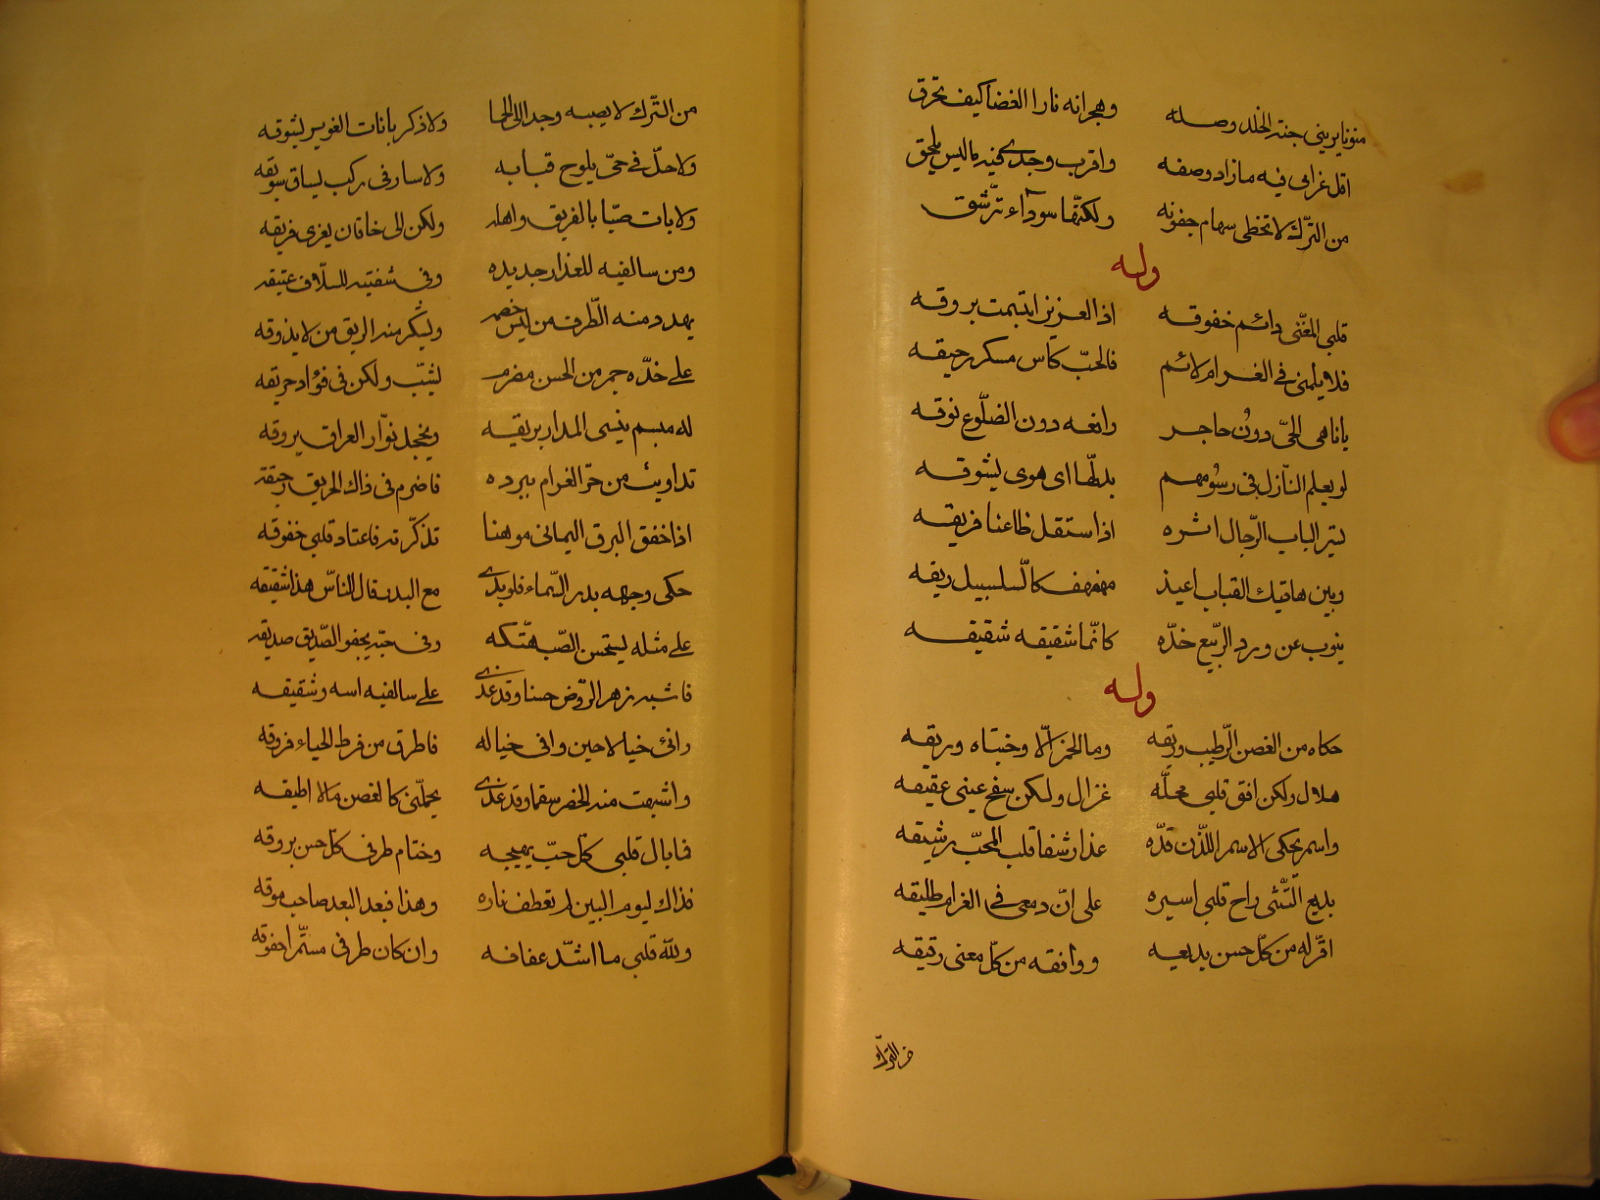 منونا يريني جنة الخلد وصله وهجرانه نارا الغضا كيف تحرق
اقل غرامى فيه مازاد وصفه واقرب وجدى كنه ماليس يلحق
من الترك لا تخطى سهام جفونه ولكنّها سوداء ترّشق
وله
قلبى المعّنى دائم خفوقه اذ العزيز ابتسمت بروقه
فلا يلمنى فى الغرام لائم فالحبّ كاس مسكر رحيقه
ياناهى الحىّ دون حاجر دون الضلّوع نوقه
لو يعلم النّازل فى رسومهم اى هوى يشوقه
الرّجال اثره اذا ستقل ظاعنا فريقه
وبين هاتيك القباب اغيد مهفهف كالّسلسبيل ريقه
ينوب عن ورد الرّبيع خدّه كانّما شقيقه شقيقه
وله
حكاه من الغصن الرّطيب وريقه وما الخمر الّا وجنتاه وريقه
هلال ولكن افق قلبى محلّه غزال ولكن سفح عينى عقيقه
واسمر يحكى الاسمر اللّدن قدّه غدا رشفا قلب المحبّ رشيقه
بديع التّثنى راح قلبى اسيره على انّ دمعى فى الغرام طليقه
اقرّ له من كلّ حسن بديعه ووافقه من كلّ معنى رقيقه
من الترّك
من التّرك لا يصبه وجد الى الحما ولا ذكر بانات الغوير يشوقه
ولا حلّ فى حىّ يلوح قبابه ولا سار فى ركب يساق سوقه
ولا بات صبّا بالفريق واهله ولكن الى خاقان يعزى فريقه
ومن سالفيه للعذار جديده وفى شفتيه للسلّاف عتيقه
يهدد منه الطّرف من ليس خصمه وليسكر منه الريق من لا يذوقه
على خدّه جمر من الحسن مضرم يشبّ ولكن فى فؤاد حريقه
له مبسم ينسى المدام بريقه ويخجل نوّار العراق بروقه
تداويت من حرّ الغرام ببرده فاضرم فى ذاك الحريق رحيقه
اذا خفق البرق اليمانى موهنا تذكّرته فاعتاد قلبى خفوقه
حكى وجهه بدر السّماء فلو بدى مع البدر قال النّاس هذا شقيقه
على مثله يستحسن الصّب هتّكه وفى حبّه يجفو الصّديق صديقه
فاشبه زهر الرّوض حسنا وقد غدى على سالفيه اسه وشقيقه
رانى خيالا حين وافى خياله فاطرق من فرط الحياء فروقه
واشبهت منه الخصر سقما وقد غدى يحملّنى كالغصن مالا اطيقه
فما بال قلبى كلّ حبّ يهيجه وختام طرفى كلّ حسن يروقه
فذاك ليوم البين لم تعطف ناره وهذا فبعد البعد ماجب موقه
ولله قلبى ما اشدّ عفافه وان كان طرفى مستّمرا خفوقه